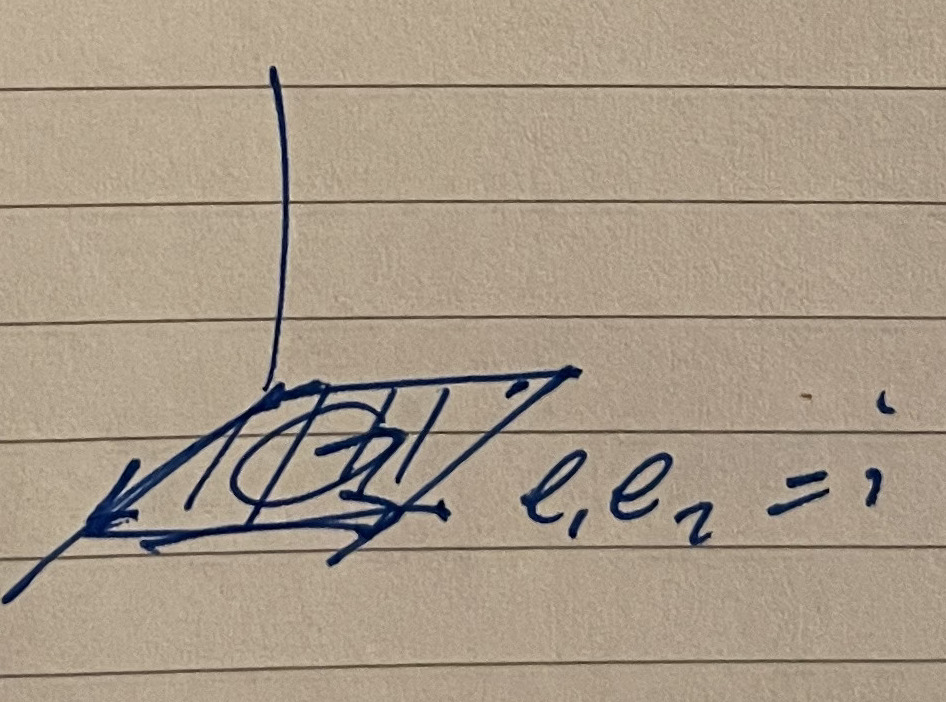 e₁e₂ = i